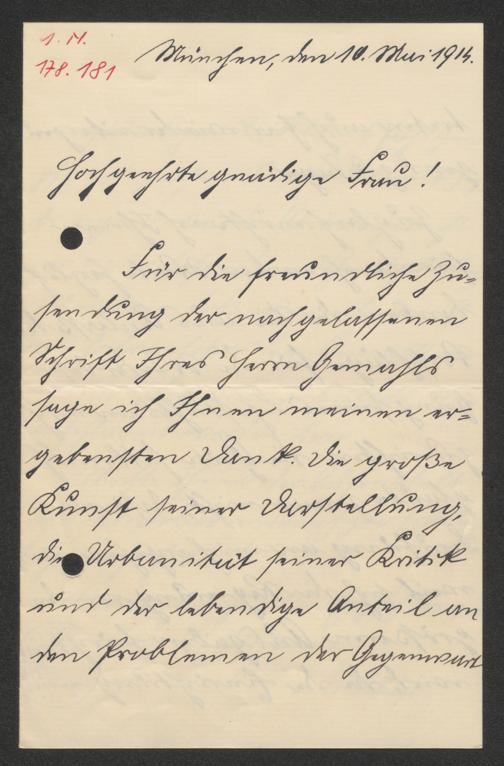 1. M.
178. 181
München, den 10. Mai 1914.
Hochgeehrte gnädige Frau!
Für die freundliche Zu=
sendung der nachgelassenen
Schrift Ihres Herrn Gemahls
sage ich Ihnen meinen er=
gebensten Dank. Die große
Kunst seiner Darstellung,
die Urbanität seiner Kritik
und der lebendige Anteil an
den Problemen der Gegenwart